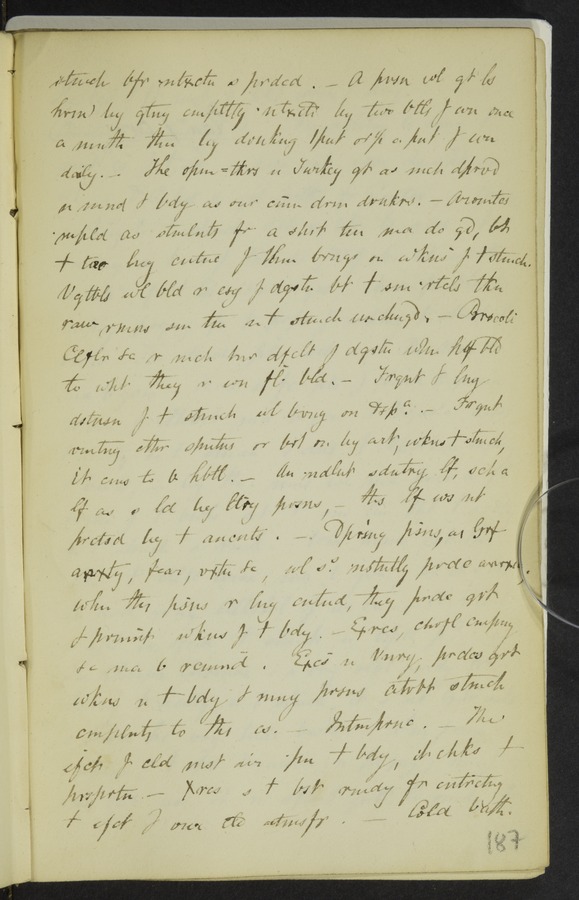 stmch bfr intxctn s prdcd. — A prsn wl gt ls
hrm by gtng cmplttly intxctd by two btls J wn once
a mnth thn by drnking 1 pnt or ½ a pnt J wn
daily. — The opm=tkrs n Turkey gt as mch dprvd
n mnd & bdy as our cmn drm drnkrs. — Aromtcs
mpld as stmlnts fr a shrt tm ma do gd, bt
+ too lng cntne J thm brngs on wkns J + stmch.
Vgtbls wl bld r esy J dgstn bt + sm rtcls tkn
raw, rmns sm tm n + stmch unchngd. — Broccoli
Clflr &c r mch mr dfclt J dgstn whn hlf bld
to wht they r wn fl. bld. — Frqnt & lng
dstnsn J + stmch wl brng on Dspa. — Frqnt
vmtng ethr spntns or brt on by art, wkns + stmch,
it cms to b hbtl. — An ndlnt sdntry lf, sch a
lf as s ld by ltry prsns, — ths lf ws nt
prctsd by + ancnts. — Dprsng psns, as Grf
anxty, fear, vxtn &c, wl s. nstntly prdc
whn ths psns r lng cntnd, they prdc grt
& prmnnt wkns J + bdy. — Exrcs, chrfl cmpny
&c ma b rcmnd. Excs n Vnry, prdcs grt
wkns n + bdy & mny prsns atrbt stmch
cmplnts to ths cs. — Intmprnc. — The
efct J cld mst air pn + bdy, it chks +
prsprtn — Xrcs s + bst rmdy fr cntrctng
+ efct J our cld atmsfr. — Cold Bath.
187